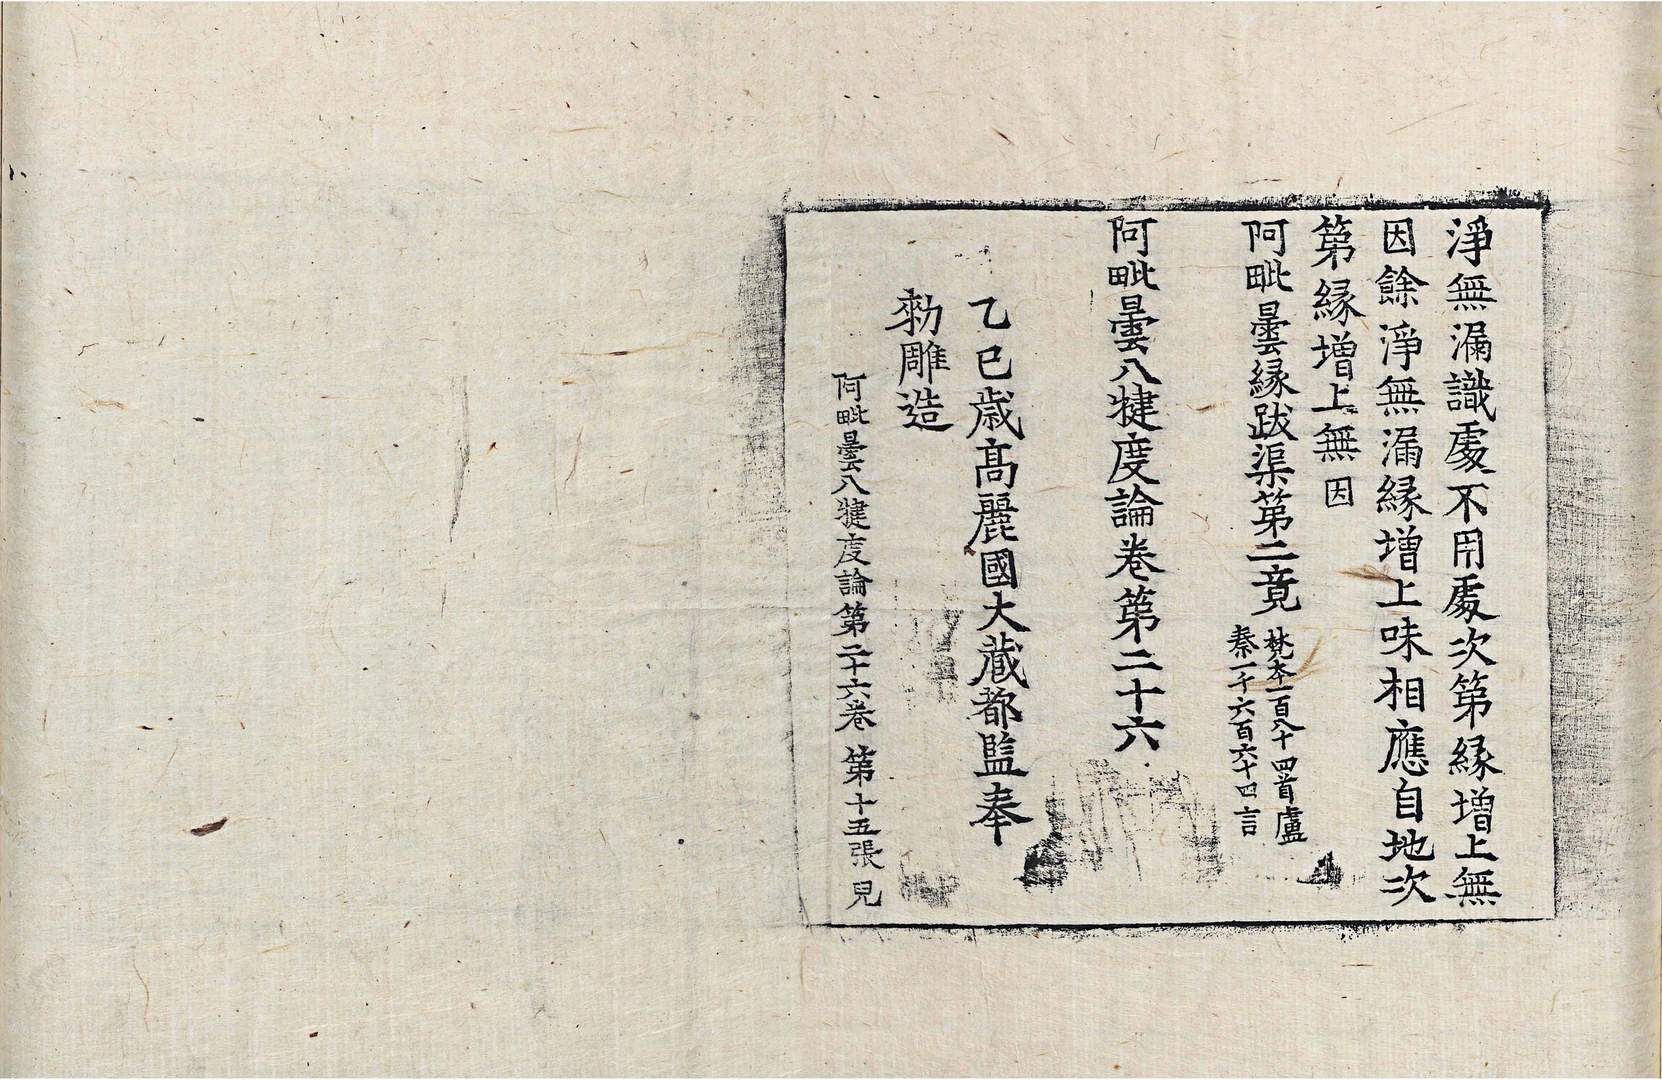 淨無漏識處不用處次第緣增上無
因餘淨無漏緣增上味相應自地次
第緣增上無因
阿毗曇緣跋渠第二竟
梵本一百八十四首盧
秦一千六百六十四言
阿毗曇八犍度論卷第二十六
乙巳歲高麗國大藏都監奉
勑雕造
阿毗曇八犍度論第二十六卷 第十五張 見